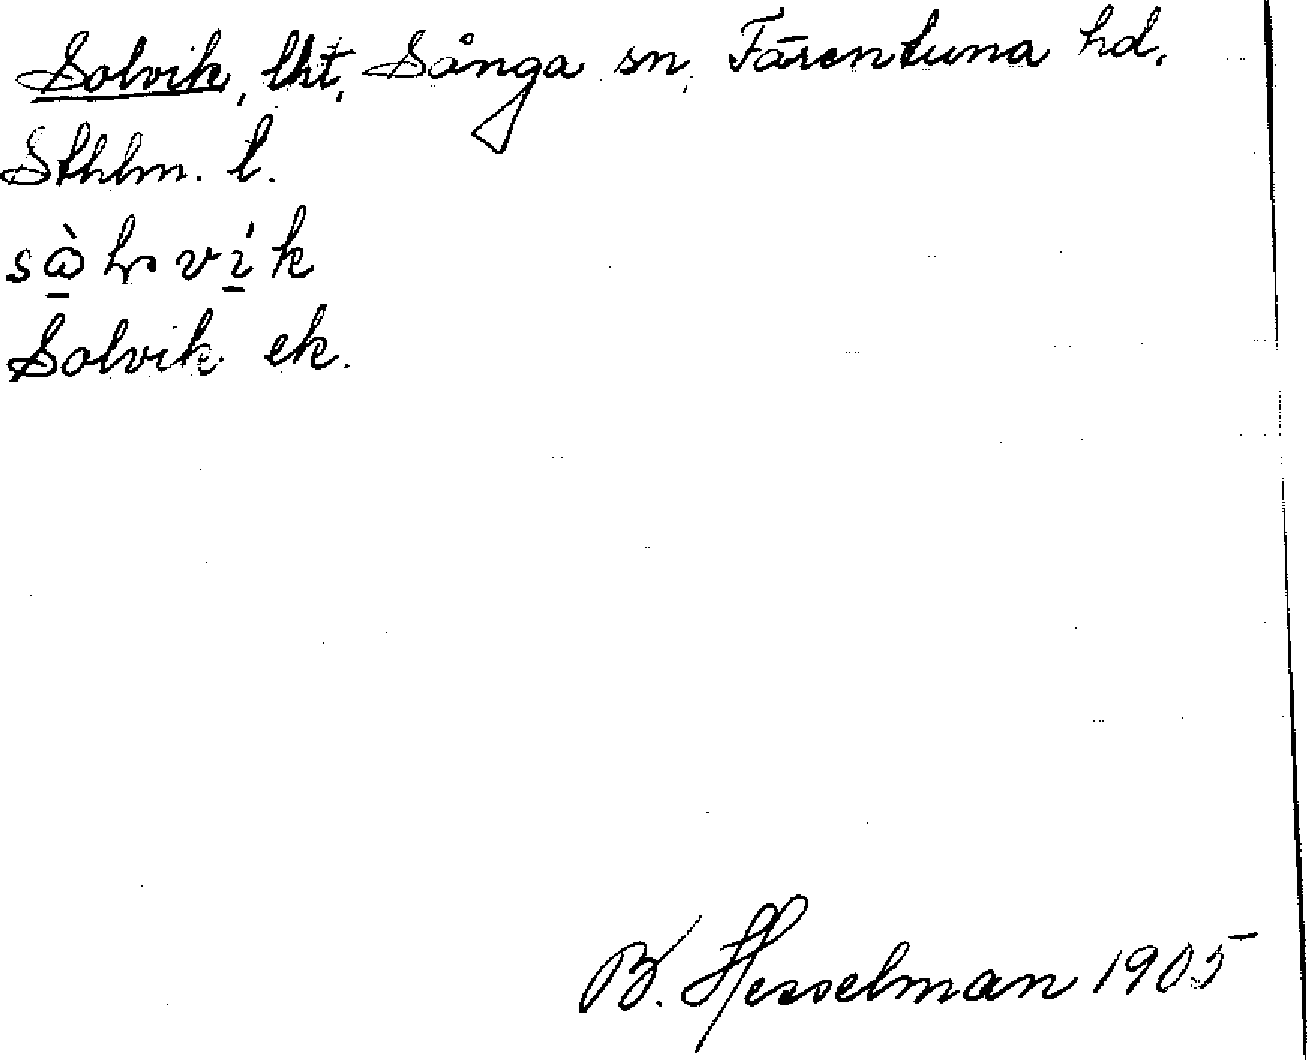 Solvik, lht, Sånga sn, Färentuna hd.
Sthlm. l.
Solvik ek.
B. Hesselman 1905